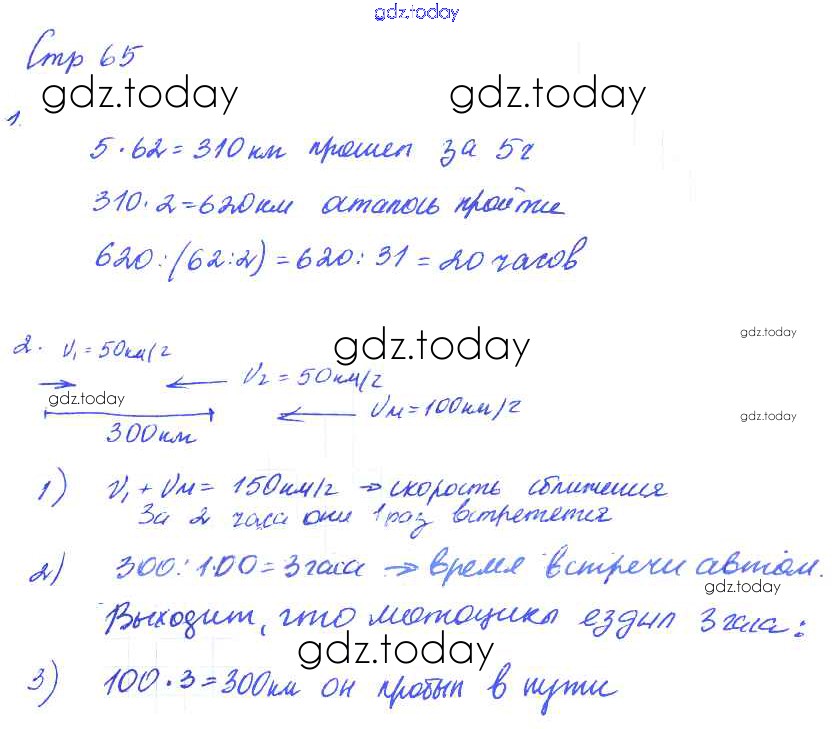 gdz.today
Стр 65
gdz.today gdz.today
1.
5·62=310км прошел за 5ч
310·2=620км аталось пройти
620:(62:2)=620:31=20 часов
2. V₁=50км/ч gdz.today gdz.today
V₂=50км/ч
gdz.today Vм=100км/ч gdz.today
300км
1) V₁+Vм=150км/ч → скорость сближения
За 2 часа они 1 раз встретется
2) 300:100=3часа → время встречи автом.
gdz.today
Выходит, что мотоцикл ездил 3часа:
gdz.today
3) 100·3=300км он пробыл в пути